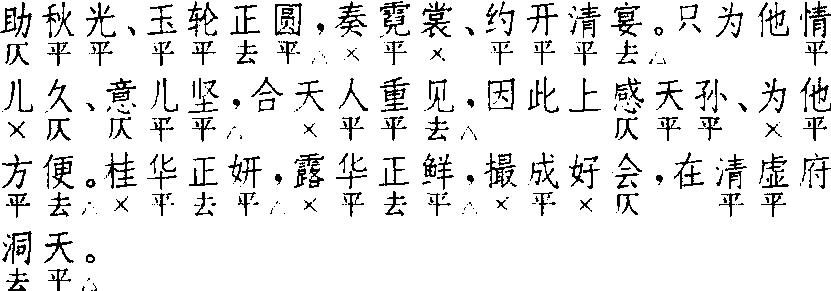 助秋光、玉轮正圆,奏霓裳、约开清宴。只为他情
仄平平 平平去平△×平× 平平平去△ 平
儿久、意儿坚,合天人重见,因此上感天孙、为他
×仄 仄平平△ ×平平去△ 仄平平 ×平
方便。桂华正妍,露华正鲜,撮成好会,在清虚府
平去△×平去平△×平去平△×平×仄 平平
洞天。
去平△